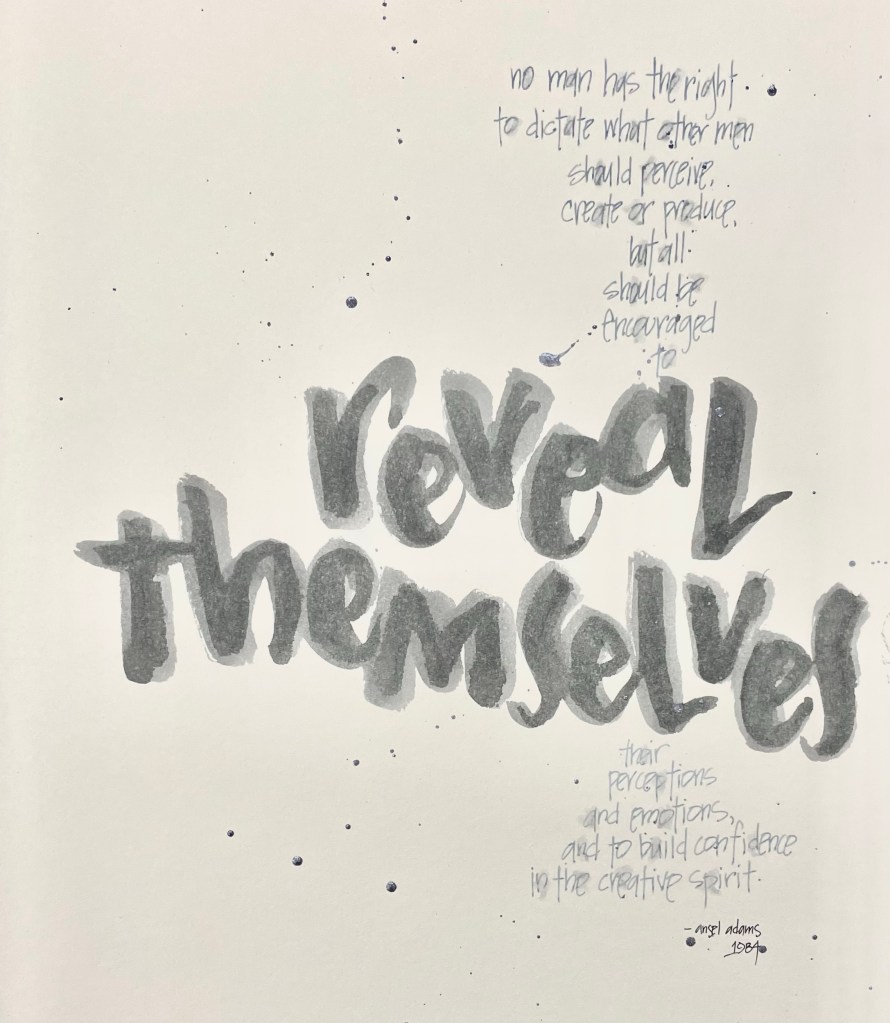 no man has the right
to dictate what other men
should perceive,
create or produce,
but all
should be
encouraged
to
reveal
themselves
their
perceptions
and emotions,
and to build confidence
in the creative spirit.
- ansel adams
1984